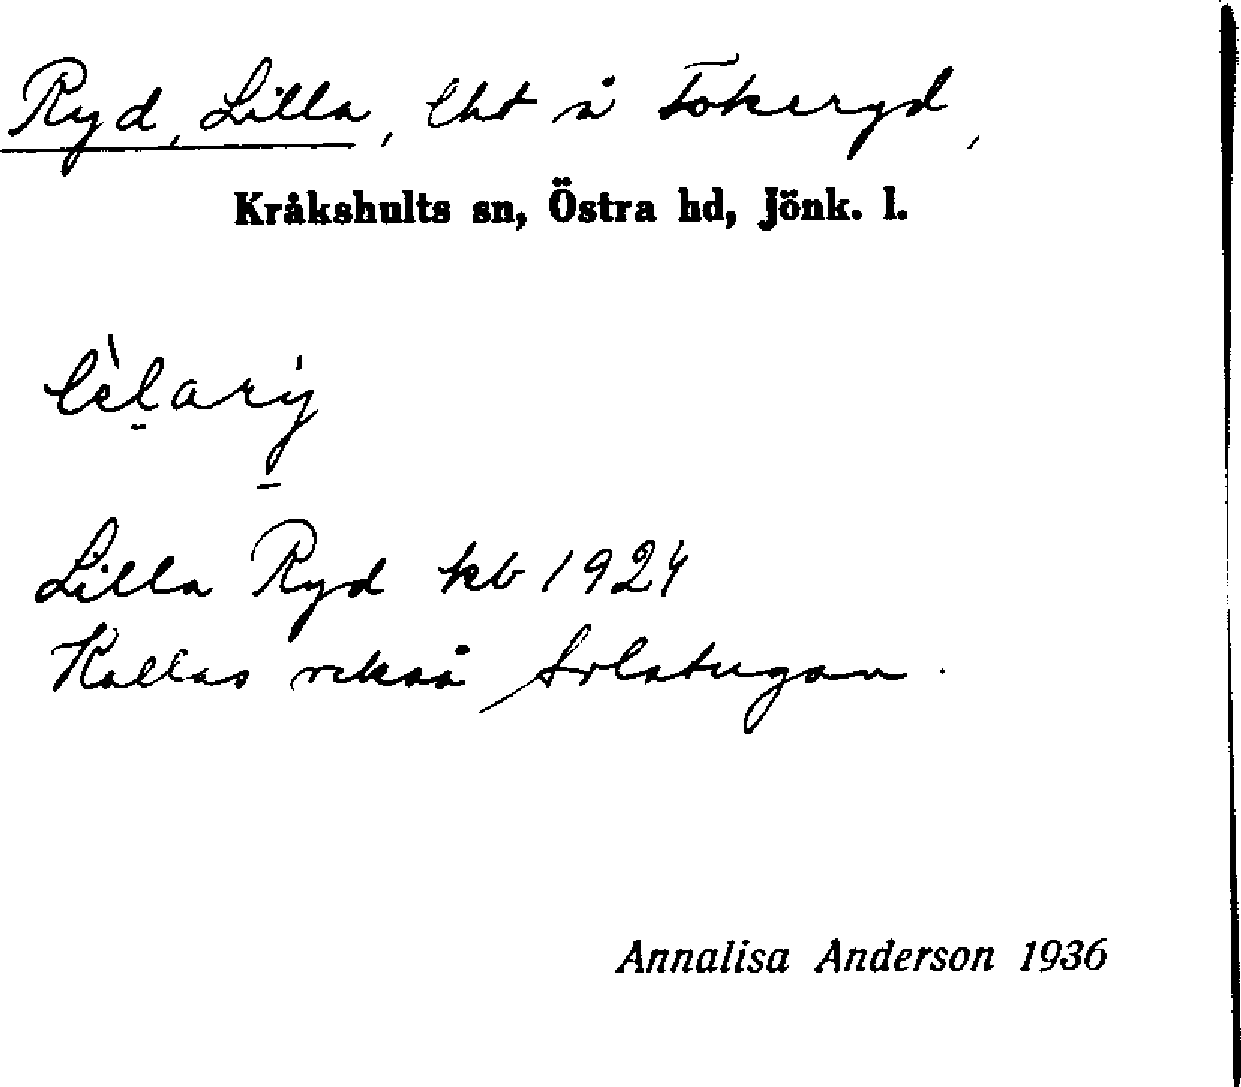 Ryd, Lilla, lht å Tokeryd,
Kråkshults sn, Östra hd, Jönk. l.
Lilla Ryd kb 1924
Kallas också
Annalisa Anderson 1936